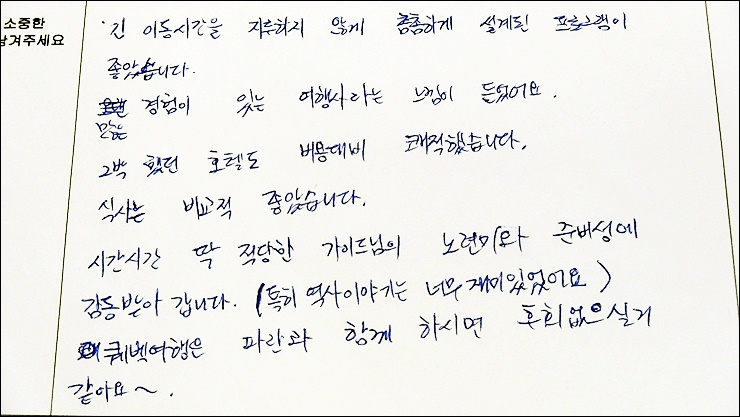 소중한
남겨주세요
긴 이동시간을 지루하지 않게 촘촘하게 설계된 프로그램이
좋았습니다.
경험이 있는 여행사라는 느낌이 들었어요.
많은
2박 했던 호텔도 비용대비 쾌적했습니다.
식사는 비교적 좋았습니다.
시간시간 딱 적당한 가이드님의 노련미와 준비성에
감동받아 갑니다. (특히 역사이야기는 너무 재미있었어요)
퀘벡여행은 파란과 함께 하시면 후회없으실거
같아요~.